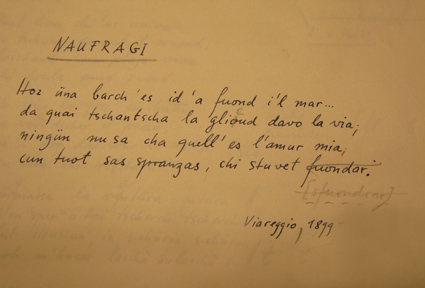 NAUFRAGI
Hoz üna barch'es id'a fuond i'l mar...
da quai tschantscha la glieud davo la via;
ningün nu sa cha quell'es l'amur mia,
cun tuot sas spranzas, chi stuvet fuondar.
Viareggio, 1899